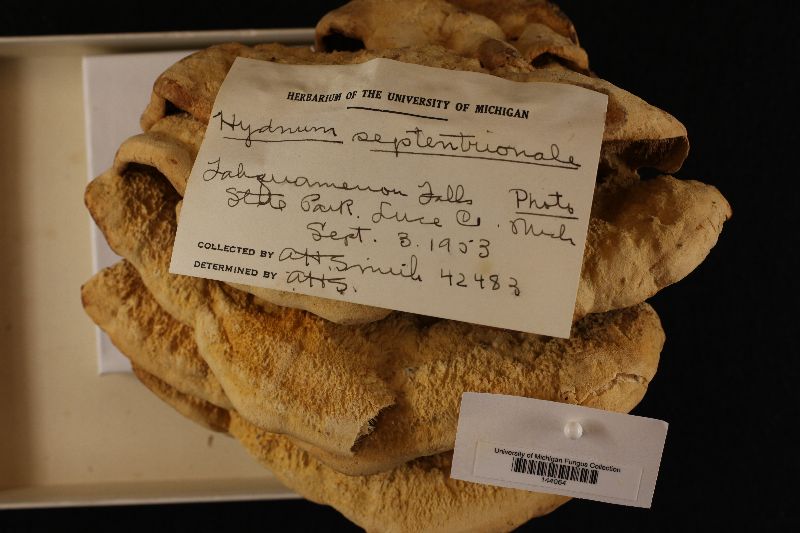 HERBARIUM OF THE UNIVERSITY OF MICHIGAN
Hydnum septentrionale
Tahquamenon Falls Photo
State Park. Luce Co. Mich
Sept. 3. 1953
COLLECTED BY A.H. Smith 42483
DETERMINED BY A.H.S.
University of Michigan Fungus Collection
144064